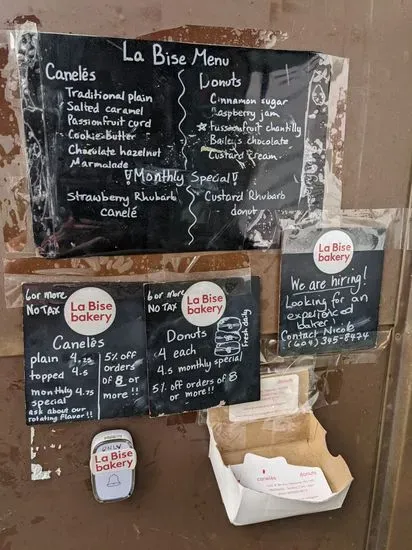 La Bise Menu
Canelés
Traditional plain
Salted caramel
Passionfruit curd
Cookie-butter
Chocolate hazelnut
Marmalade
Donuts
Cinnamon sugar
Raspberry jam
Passionfruit chantilly
Bailey's chocolate
Custard cream
!Monthly Special!
Strawberry Rhubarb
canelé
Custard Rhubarb
donut
6 or more
NO TAX
La Bise
bakery
Canelés
plain 4.25
topped 4.5
monthly 4.75
special
ask about our
rotating flavor!!
5% off
orders
of 8 or
more!!
6 or more
NO TAX
La Bise
bakery
Donuts
4 each
4.5 monthly special
5% off orders of 8
or more!!
Fresh daily
La Bise
bakery
We are hiring!
Looking for an
experienced
baker!
Contact Nicole
(604) 345-8474
La Bise
bakery
canelés donuts